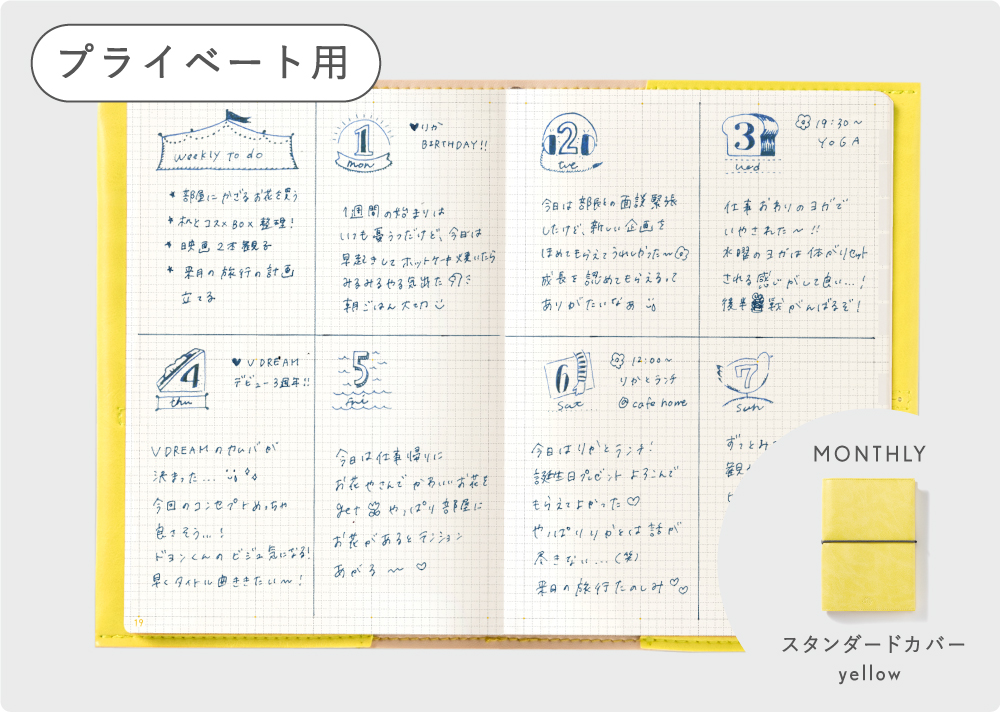 プライベート用
weekly To do
* 部屋にかざるお花を買う
* 机とコスメBOX整理!
* 映画2本観る
* 来月の旅行の計画
立てる
1
mon
♥りか
BIRTHDAY!!
1週間の始まりは
いつも憂うつだけど、今日は
早起きしてホットケーキ焼いたら
みるみるやる気出た
朝ごはん大切
2
tue
今日は部長との面談緊張
したけど、新しい企画を
ほめてもらえてうれしかった〜
成長を認めてもらえるって
ありがたいなぁ
3
wed
19:30〜
YOGA
仕事おわりのヨガで
いやされた〜!!
水曜のヨガは体がリセット
される感じがして良い...!
後半戦がんばるぞ!
4
thu
♥ VDREAM
デビュー3周年!!
VDREAMのカムバが
決まった...
今回のコンセプトめっちゃ
良さそう...!
ドヨンくんのビジュ気になる!
早くタイトル曲ききたい〜!
5
Fri
今日は仕事帰りに
お花やさんでかわいいお花を
get やっぱり部屋に
お花があるとテンション
あがる〜♡
6
Sat
12:00〜
りかとランチ
@cafe home
今日はりかとランチ!
誕生日プレゼントよろこんで
もらえてよかった♡
やっぱりりかとは話が
尽きない...(笑)
来月の旅行たのしみ♡♡
7
Sun
ずっとみ
観
19
MONTHLY
スタンダードカバー
yellow